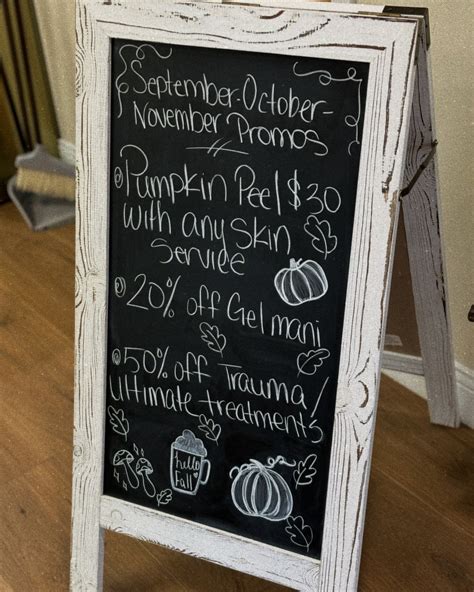 September-October-
November Promos
Pumpkin Peel $30
with any Skin
Service
20% off Gel mani
50% off Trauma/
Ultimate treatments
hello
Fall